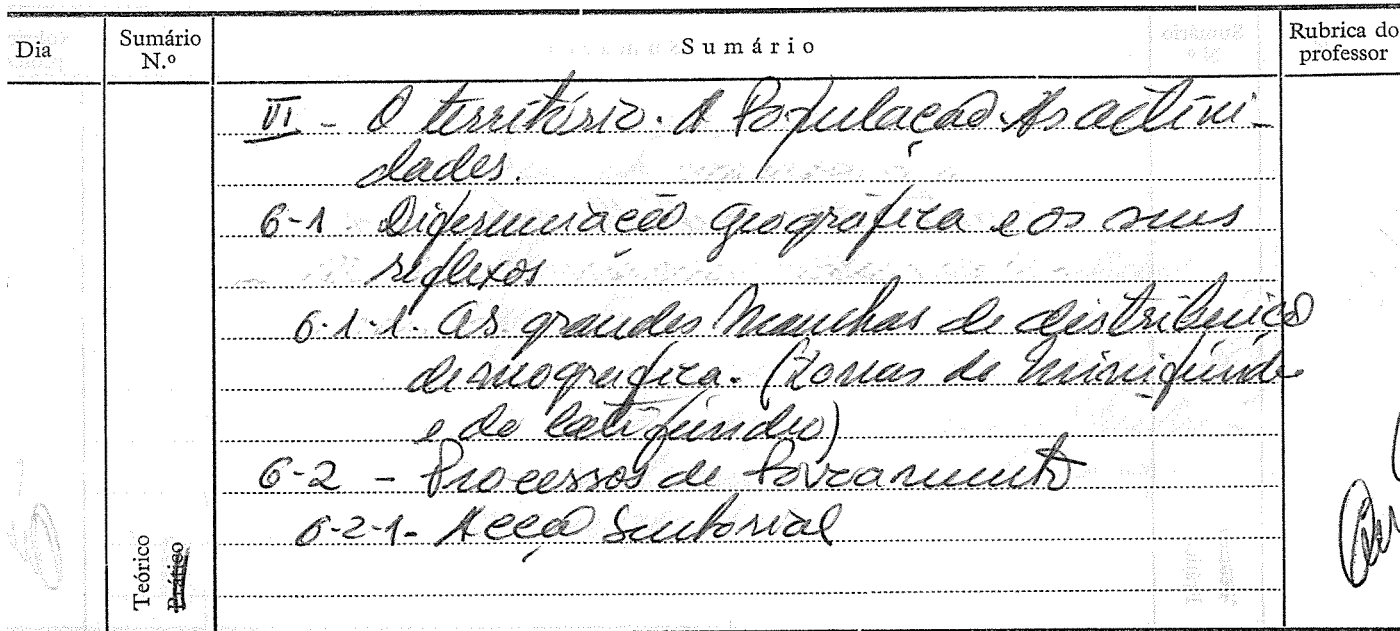 Dia
Sumário N.º
Sumário
Rubrica do professor
VI - O território. A População. As activi-
dades.
6-1 Diferenciação geográfica e os seus
reflexos
6-1-1. As grandes manchas de distribuição
demográfica. (Zonas de minifúndio
e de latifúndio)
6-2 - Processos de Povoamento
6-2-1. Acção Senhorial
Teórico
Prático